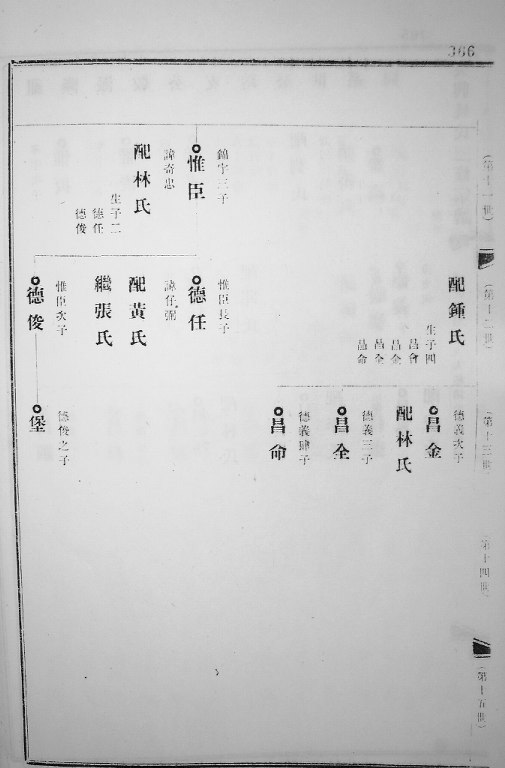 366
(第十一世)
(第十二世)
(第十三世)
(第十四世)
(第十五世)
錦宇三子
惟臣
諱奇忠
配林氏
生子二
德任
德俊
配鍾氏
生子四
昌會
昌金
昌全
昌命
惟臣長子
德任
諱任弼
配黃氏
繼張氏
惟臣次子
德俊
德義次子
昌金
配林氏
德義三子
昌全
德義肆子
昌命
德俊之子
堡